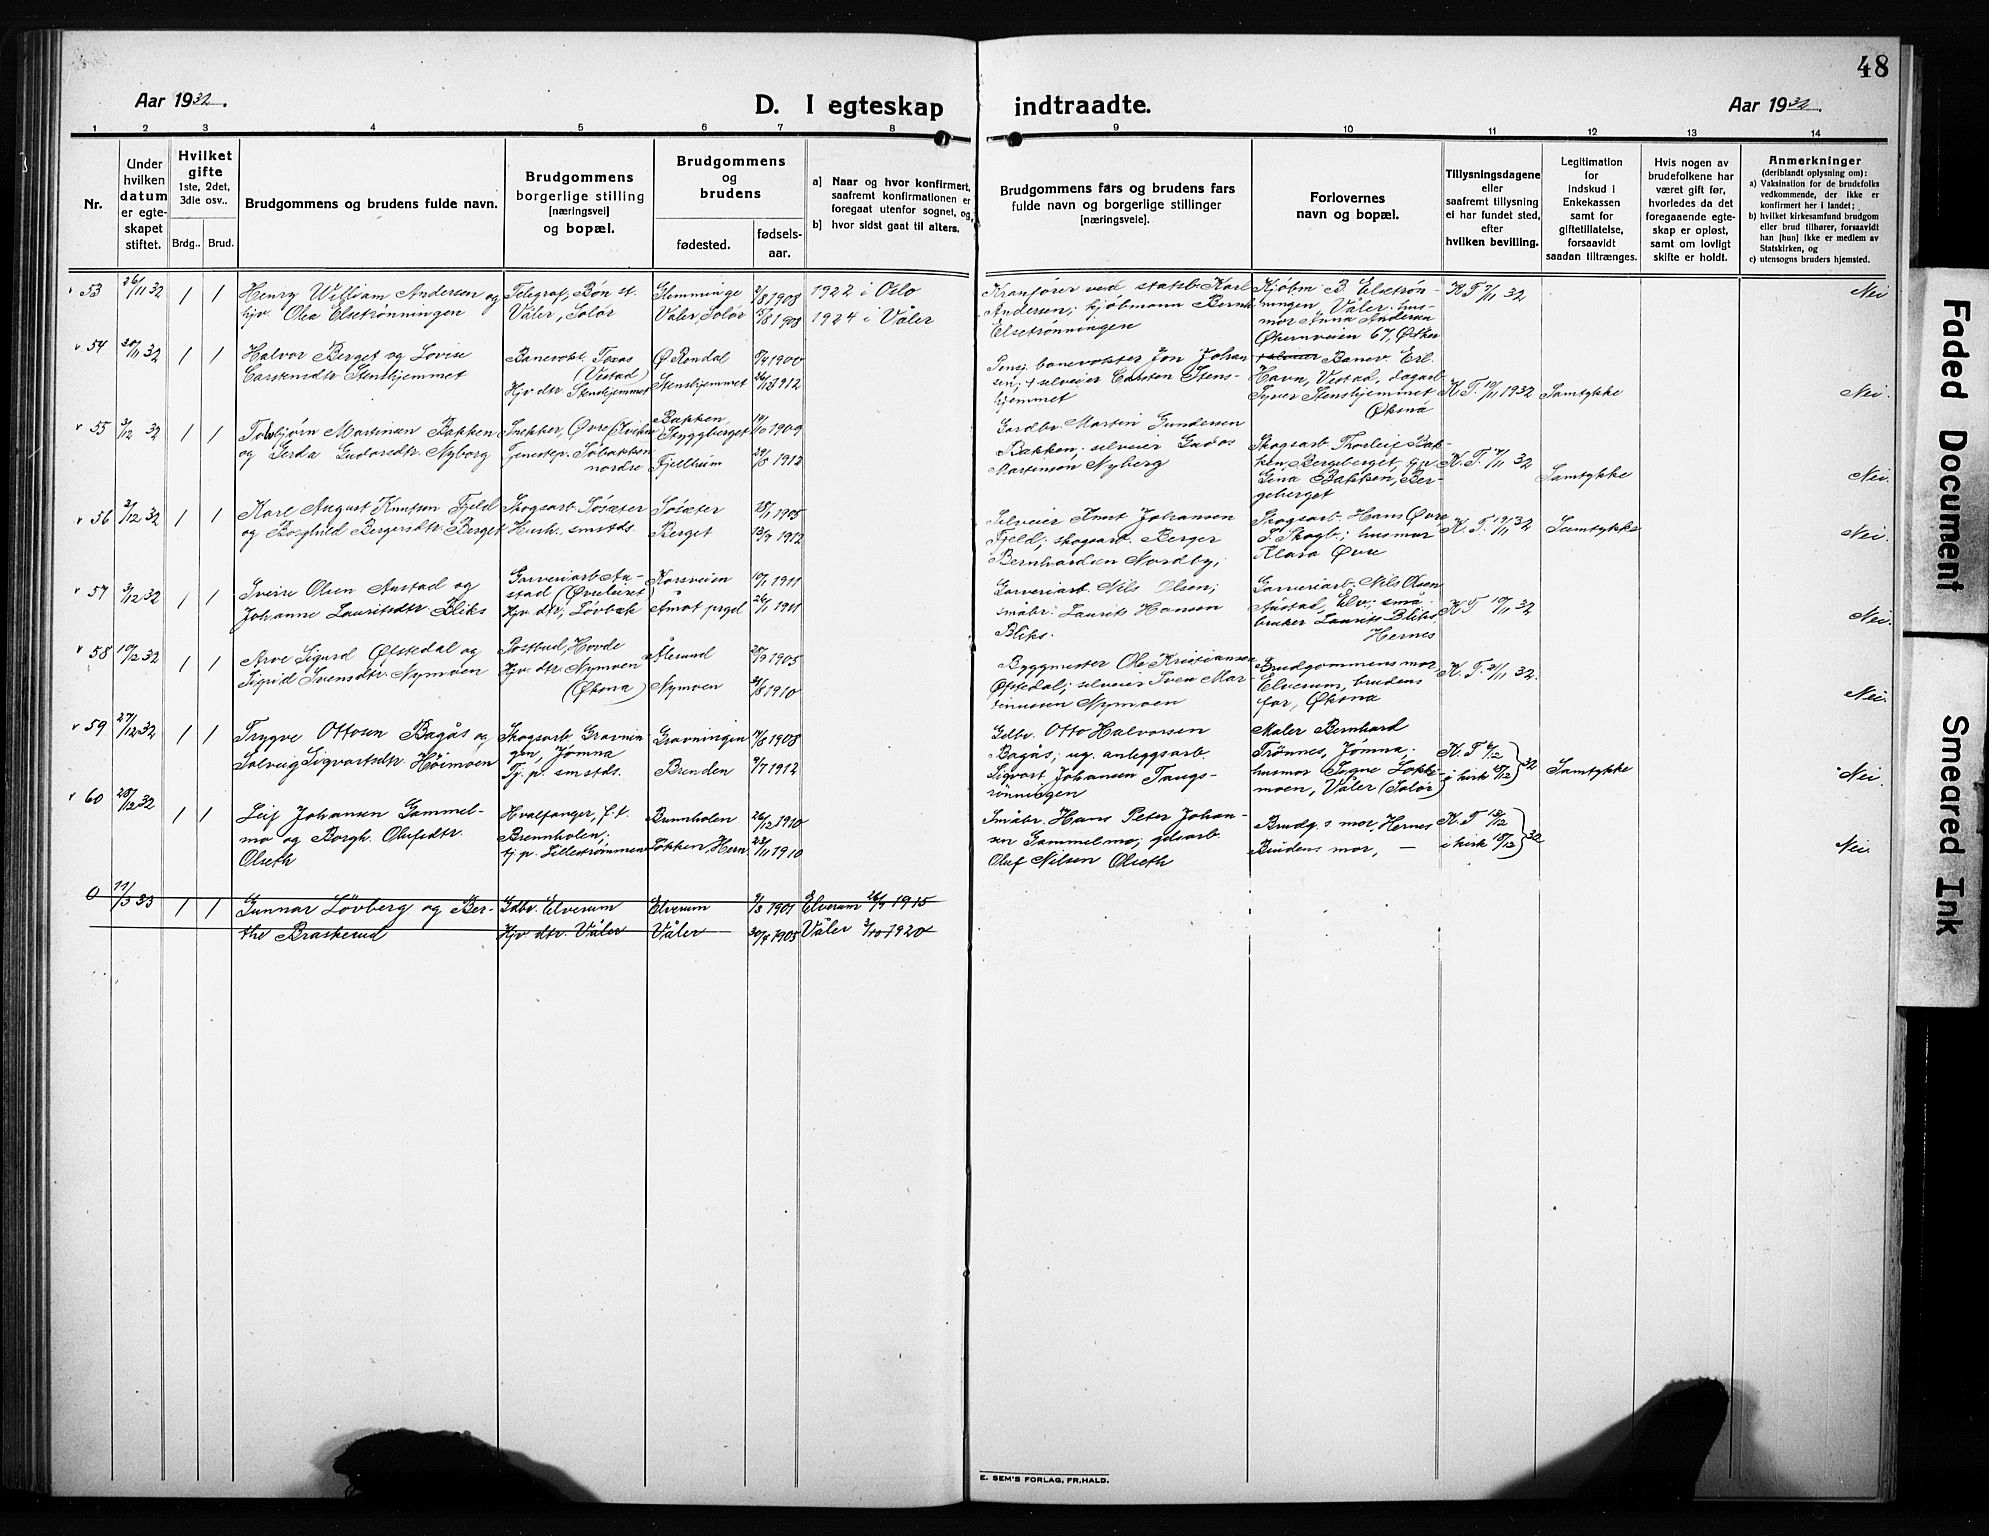 48
Aar 1932.
D. I egteskap indtraadte.
Aar 1932.
1 2 3 4 5 6 7 8 9 10 11 12 13 14
Nr.
Under hvilken datum er egteskapet stiftet.
Hvilket gifte 1ste, 2det, 3die osv..
Brdg.. Brud.
Brudgommens og brudens fulde navn.
Brudgommens borgerlige stilling [næringsvei] og bopæl.
Brudgommens og brudens
fødested.
fødsels-aar.
a] Naar og hvor konfirmert, saafremt konfirmationen er foregaat utenfor sognet, og,
b] hvor sidst gaat til alters.
Brudgommens fars og brudens fars fulde navn og borgerlige stillinger [næringsveie].
Forlovernes navn og bopæl.
Tillysningsdagene eller saafremt tillysning ei har fundet sted, efter hvilken bevilling.
Legitimation for indskud i Enkekassen samt for giftetillatelse, forsaavidt saadan tiltrænges.
Hvis nogen av brudefolkene har været gift før, hvorledes da det foregaaende egteskap er opløst, samt om lovligt skifte er holdt.
Anmerkninger (deriblandt oplysning om):
a) Vaksination for de brudefolks vedkommende, der ikke er konfirmert her i landet;
b) hvilket kirkesamfund brudgom eller brud tilhører, forsaavidt han [hun] ikke er medlem av Statskirken, og
c) utensogns bruders hjemsted.
v 53 26/11 32 1 1 Henry William Andersen og
hjv. Olea Elsetrønningen
Telegraf, Bøn st.
Våler, Solør
Glemminge
Våler, Solør
/8 1908
15/8 1908
1922 i Oslo
1924 i Våler
Kranfører ved statsb. Karl
Andersen; kjøbmann Bernh.
Elsetrønningen
Kjøbm B. Elsetrønningen, Våler; husmor Anna Andersen
Økernveien 67, Økern
K.T. 7/11 32
Nei
v 54 20/11 32 1 1 Halvor Berget og Lovise
Carstensdtr. Stenshjemmet
Banevokt. Tosås
(Vestad)
Hjv. dtr. Stenshjemmet
Ø. Rendal
Stenshjemmet
/4 1900
26/12 1912
Pensj. banevokter Jon Johansen; + selveier Carsten Stenshjemmet
Banev. Erl.
Havn, Vestad, dagarb.
Syver Stenshjemmet
Øksnå
K.T. 10/11 1932
Samtykke
Nei.
v 55 3/12 32 1 1 Torbjørn Martinsen Bakken
og Gerda Gudarsdtr. Nyborg
Snekker, Øvre
Tjenestep. Solbakken
nordre
Bakken
Styggberget
Fjellheim
19/10 1909
29/8 1912
Gardbr. Martin Gundersen
Bakken; selveier
Martinsen Nyberg
Skogsarb. Thorleif Bakken, Bergeberget,
Gina Bakken, Bergeberget
K.T. 17/11 32
Samtykke
Nei.
v 56 3/12 32 1 1 Karl August Knutsen Fjeld
og Borghild Bergersdtr. Berget
Skogsarb. Søsæter
Hush. smstds.
Søsæter
Berget
28/1 1905
13/7 1912
Selveier Knut Johansen
Fjeld; skogsarb. Berger
Bernhardsen Nordby;
Skogsarb. Hans Øvre
S. Skogb.; husmor
Klara Øvre
K.T. 19/11 32
Samtykke
Nei.
v 57 3/12 32 1 1 Sverre Olsen Austad og
Johanne Lauritsdtr. Bliks
Garveriarb. Austad (Øvreleiret)
Hjv. dtr., Løvbæk
Korsveien
Åmot prgd
10/1 1911
26/1 1911
Garveriarb. Nils Olsen;
småbr. Laurits Hansen
Bliks.
Garveriarb. Nils Olsen
Austad, Elv.; småbruker Laurits Bliks
Hernes
K.T. 19/11 32
Nei.
v 58 10/12 32 1 1 Arve Sigurd Ølstedal og
Sigrid Svensdtr. Nymoen
Postbud, Hovde
Hjv. dtr. Nymoen
(Øksna)
Ålesund
Nymoen
28/9 1905
31/8 1910
Byggmester Ole Kristiansen
Ølstedal; selveier Sven Martinussen Nymoen
Brudgommens mor
Elverum, brudens
far, Øksna
K.T. 21/11 32.
Nei.
v 59 27/12 32 1 1 Trygve Ottosen Bagås og
Solveig Sigvartsdtr. Høimoen
Skogsarb. Gravningen, Jømna
Tj. p. smstds.
Gravningen
Brenden
11/8 1908
9/7 1912
Gdbr. Otto Halvorsen
Bagås; ug. anleggsarb.
Sigvart Johansen Taugsrønningen
Maler Bernhard
Trønnes, Jømna.
husmor Signe Løkkemoen, Våler (Solør)
K.T. 9/12
i kirk 18/12 } 32
Samtykke
Nei
v 60 28/12 32 1 1 Leif Johansen Gammelmo og Borgh. Olufsdtr.
Olseth
Hvalfanger, f.t.
Brennholen;
tj. p. Lillestrømmen
Brennholen
Løkken, Hern.
26/12 1910
23/11 1910
Småbr. Hans Peter Johansen Gammelmo; gdsarb.
Oluf Nilsen Olseth
Brudg.s mor, Hernes
Brudens mor, —
K.T. 13/12
i kirk 18/12 } 32
Nei.
0 11/3 33 1 1 Gunnar Løvberg og Berthe Braskerud
Gdbr. Elverum
Hjv. dtr. Våler
Elverum
Våler
9/3 1901
30/4 1905
Elverum 26/9 1915
Våler 3/10 1920
E. SEM'S FORLAG, FR.HALD.
Faded Document
Smeared Ink